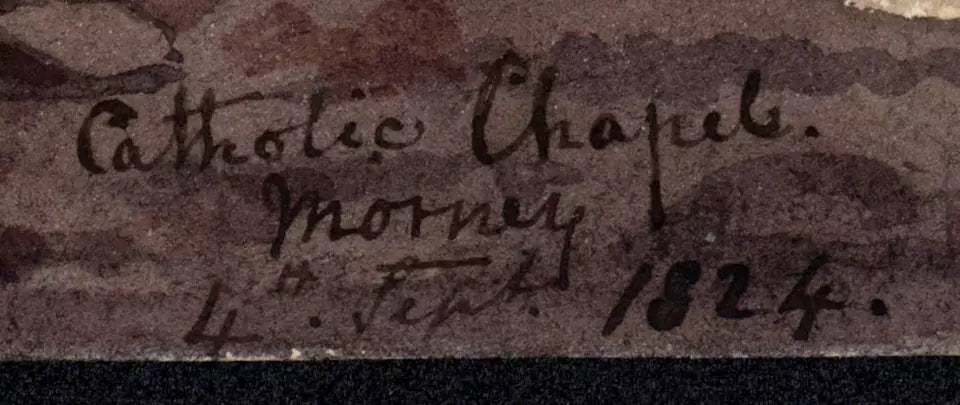 Catholic Chapel.
Morney
4th. Sept. 1824.